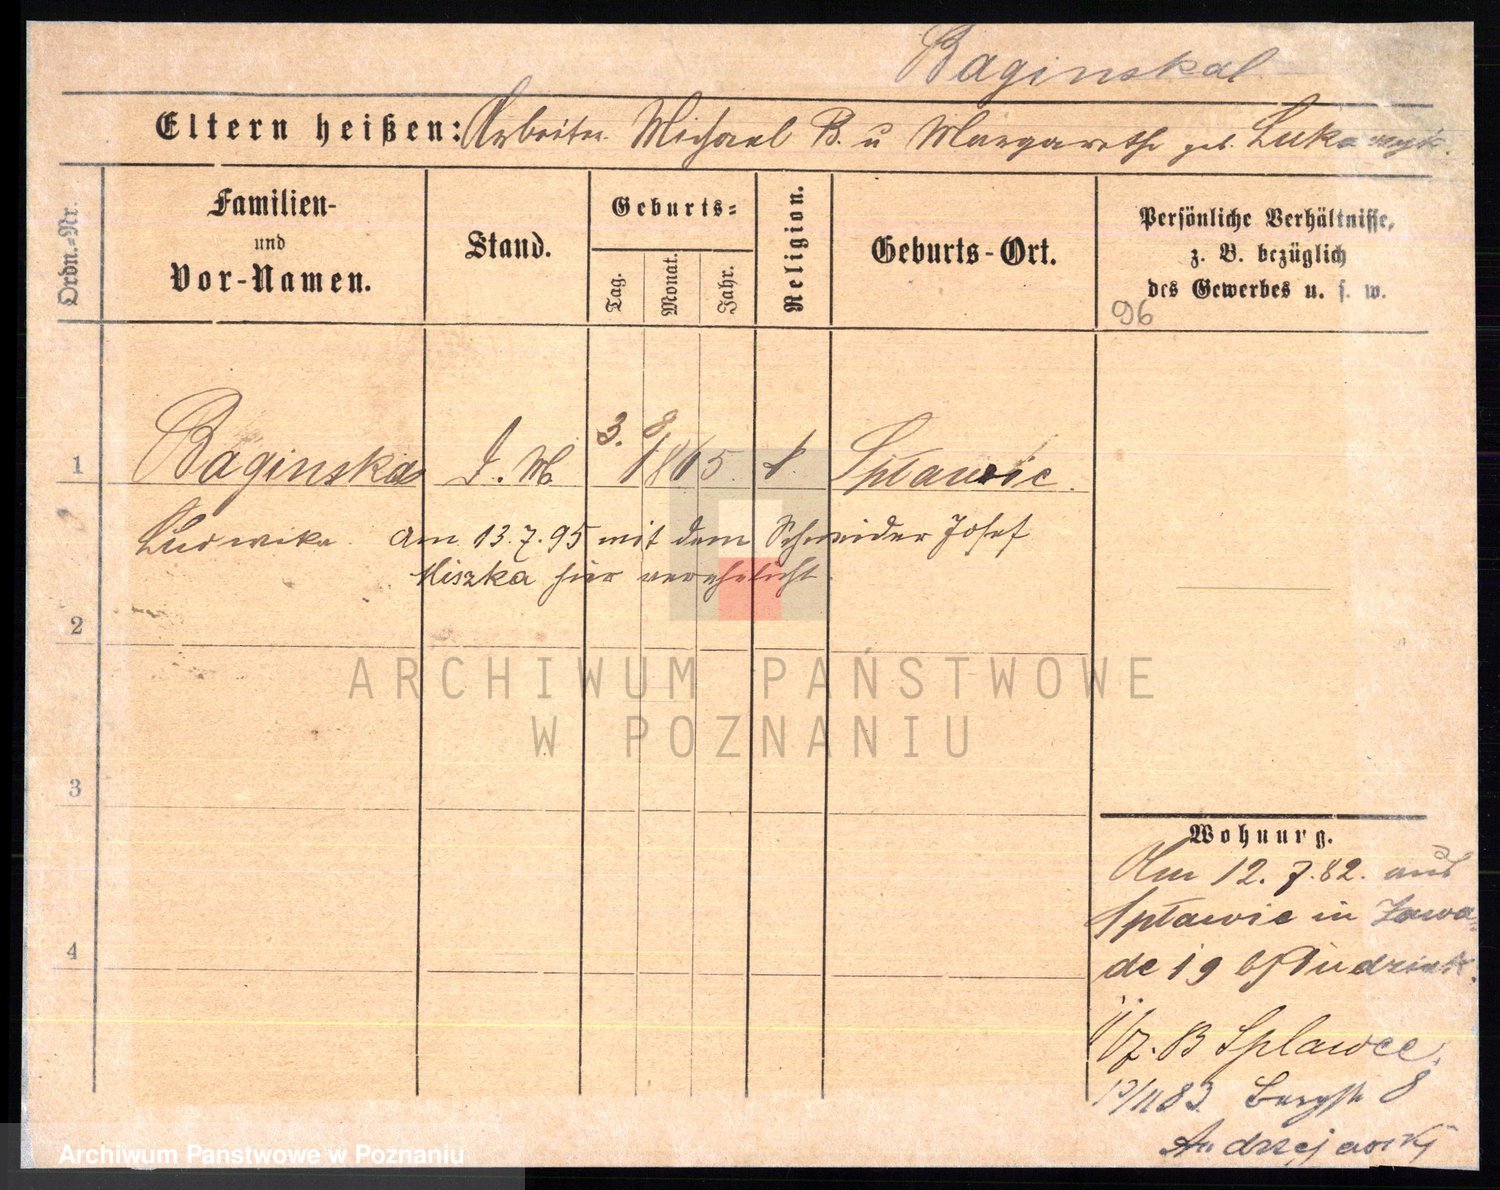 Baginska
Eltern heißen: Arbeiter Michael B. u Margarethe geb.
Ordn.-Nr.
Familien-
und
Vor-Namen.
Stand.
Geburts-
Tag.
Monat.
Jahr.
Religion.
Geburts-Ort.
Persönliche Verhältnisse,
z. B. bezüglich
des Gewerbes u. s. w.
96
1 Baginska D. M 3. 8 1865. k. Spławie.
Ludwika. am 13.7.95 mit dem Schneider Josef
Miszka hier verehelicht.
2
3
4
Wohnung.
Am 12.7.82. aus
Spławie in Zawa-
de 19
Splawce,
83 Bergstr 8
Andrzejewski
ARCHIWUM PAŃSTWOWE
W POZNANIU
Archiwum Państwowe w Poznaniu